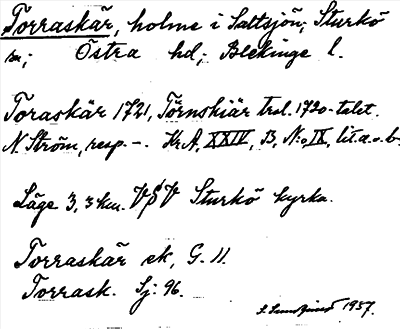 Torraskär, holme i Saltsjön; Sturkö
sn; Östra hd; Blekinge l.
Toraskär 1721, Törnskiär trol. 1720-talet.
N. Ström, resp. -. Kr.A, XXIV, B, N:o IX, lit. a. o. b.
Läge 3,3 km. VSV Sturkö kyrka.
Torraskär ek, G. 11.
Torrask. Sj: 96.
1937.